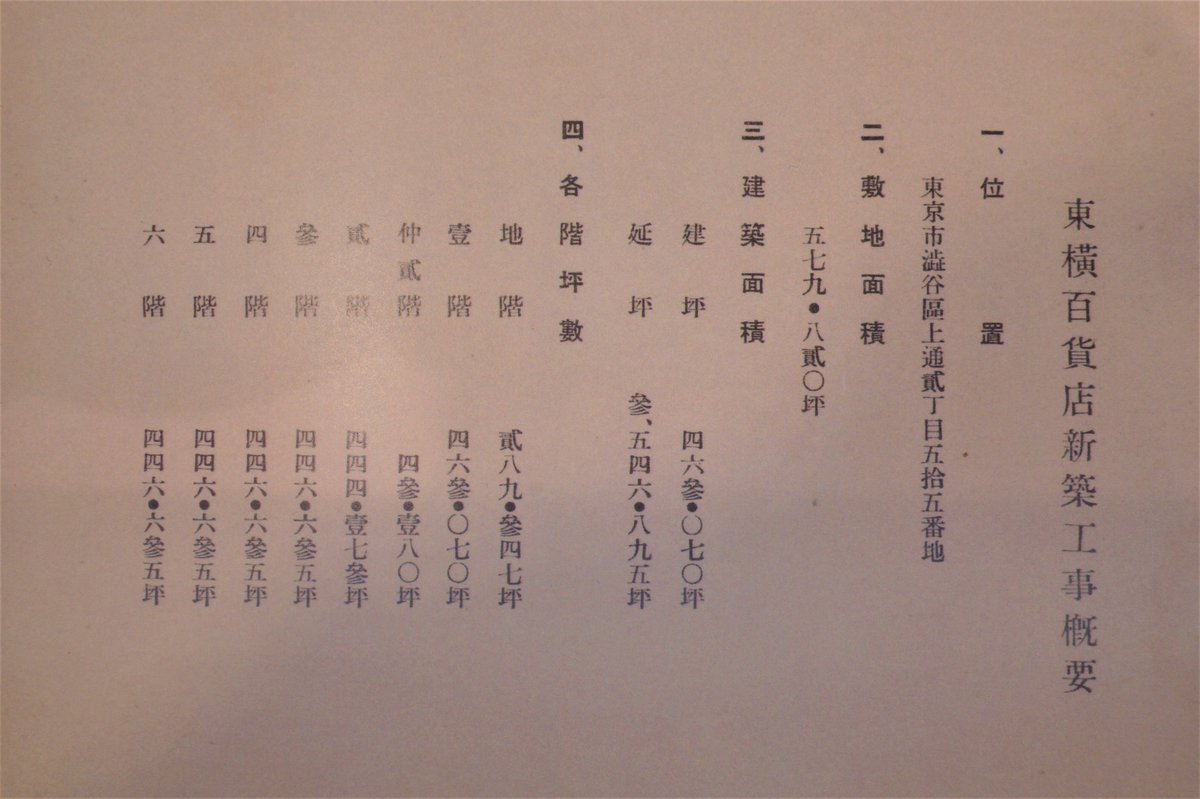 東橫百貨店新築工事概要
一、位置
東京市澁谷區上通貳丁目五拾五番地
二、敷地面積
五七九•八貳〇坪
三、建築面積
建坪 四六參•〇七〇坪
延坪 參、五四六•八九五坪
四、各階坪數
地階 貳八九•參四七坪
壹階 四六參•〇七〇坪
仲貳階 四參•壹八〇坪
貳階 四四四•壹七參坪
參階 四四六•六參五坪
四階 四四六•六參五坪
五階 四四六•六參五坪
六階 四四六•六參五坪